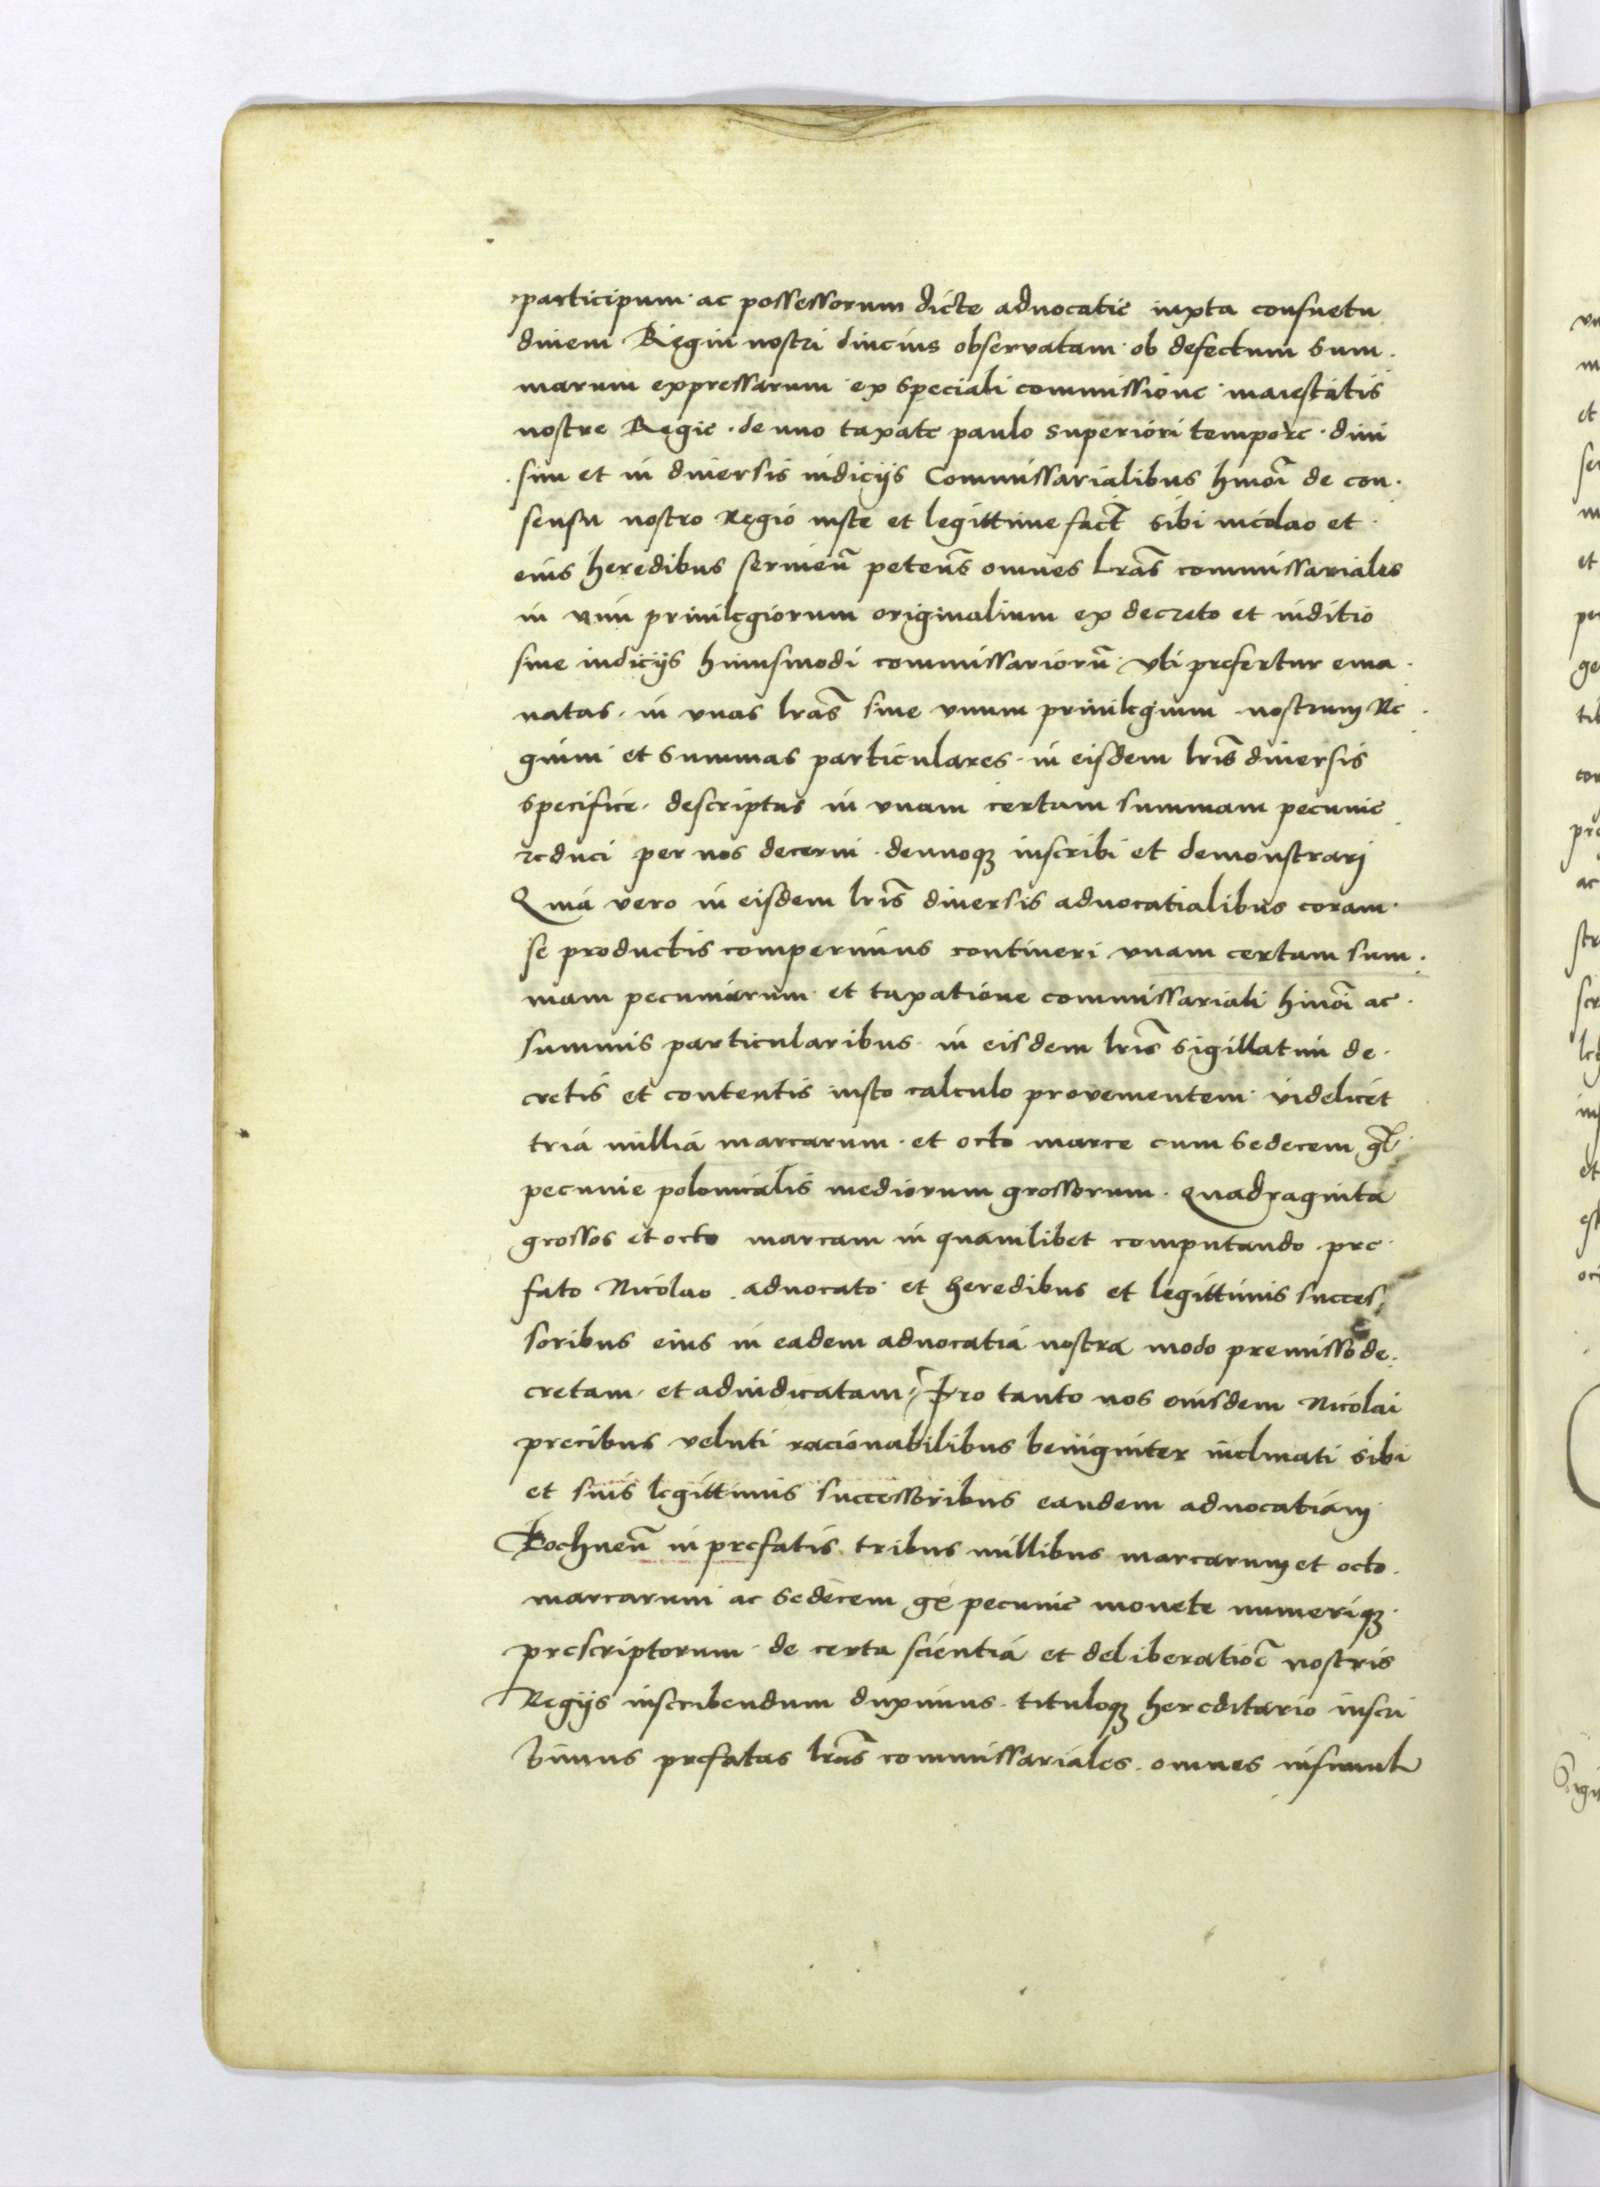 participum ac possessorum dicte aduocatie iuxta consuetu
dinem Regni nostri diucius obseruatam ob defectum sum
marum expressarum ex speciali commissione maiestatis
nostre Regie de uno taxate paulo superiori tempore diui
sim et in diuersis iudicijs Commissarialibus hmōi de con
sensu nostro Regio iuste et legittime fact sibi nicolao et
eius heredibus seruieñ peteñs omnes Lrãs commissariales
in vim priuilegiorum originalium ex decreto et iuditio
siue iudicijs huiusmodi commissariorũ vti prefertur ema
natas in vnas lrãs siue vnum priuilegium nostrum Re
gium et summas particulares in eisdem lrĩs diuersis
specifice descriptas in vnam certam summam pecunie
reduci per nos decerni denuoqȝ inscribi et demonstrari
Quia vero in eisdem lrĩs diuersis aduocatialibus coram
se productis comperimus contineri vnam certam sum
mam pecuniarum et taxatione commissariali hmōi ac
summis particularibus in eisdem lrĩs sigillatim de
cretis et contentis iusto calculo prouenientem videlicet
tria millia marcarum et octo marce cum sedecem gr̃
pecunie polonicalis mediorum grossorum quadraginta
grossos et octo marcam in quamlibet computando pre
fato Nicolao aduocato et heredibus et legittimis succes
soribus eius in eadem aduocatia nostra modo premisso de
cretam et adiudicatam Pro tanto nos eiusdem Nicolai
precibus veluti racionabilibus benigniter inclinati sibi
et suis legittimis successoribus eandem aduocatiam
Bochneñ in prefatis tribus millibus marcarum et octo
marcarum ac sedecem gr̃ pecunie monete numeriqȝ
prescriptorum de certa scientia et deliberatiõe nostris
Regijs inscribendum duximus tituloqȝ hereditario inscri
bimus prefatas lrãs commissariales omnes insimul